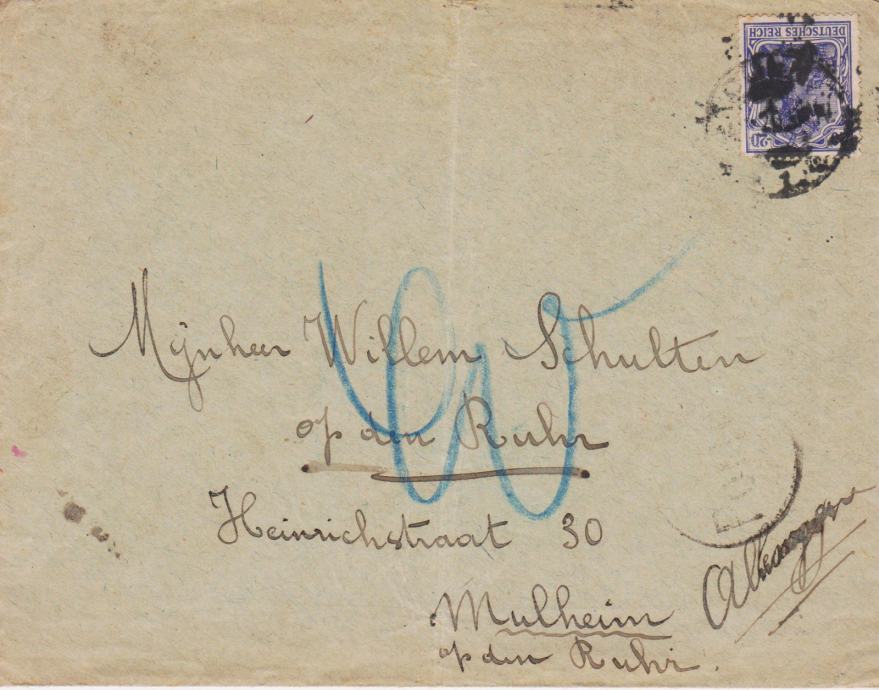 DEUTSCHES REICH
20
Mijnheer Willem Schulten
op den Ruhr
Heinrichstraat 30
Mulheim
op den Ruhr.
W